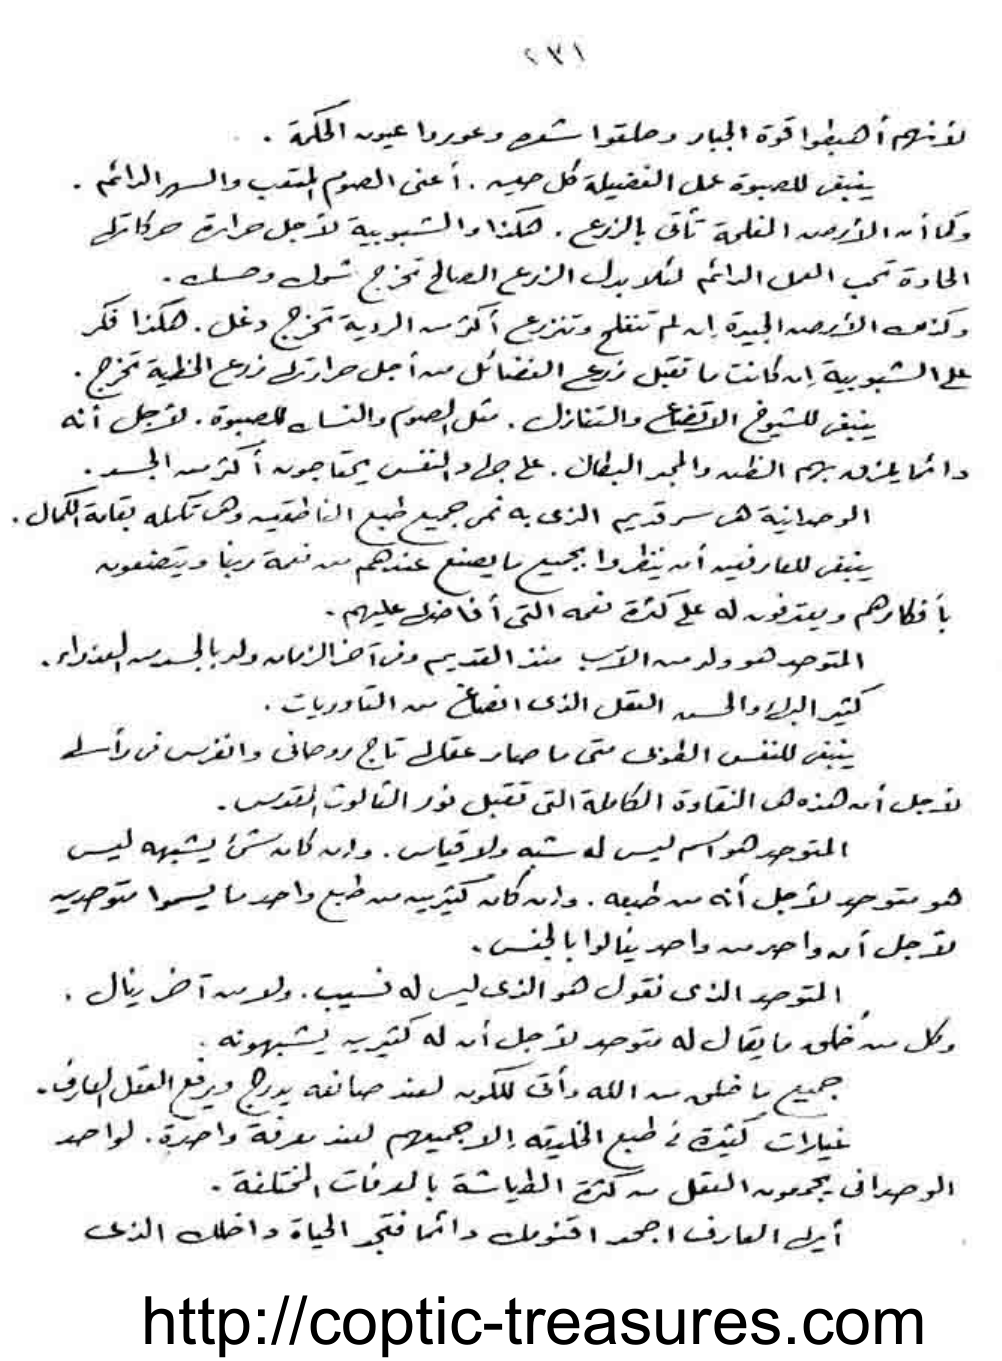 ٢٣١
لأنهم أهبطوا قوة الجبار وحلقوا شعره وعوروا عيون الحكمة .
ينبغى للصبوة عمل الفضيلة كل حين . أعنى الصوم المتعب والسهر الدائم .
وكما أن الأرض المفلحة تأتى بالزرع . هكذا والشبوبية لأجل حرارة حركاتها
الحادة تحب العمل الدائم لئلا بدل الزرع الصالح تخرج شوك وحسك .
وكذلك الأرض الجيدة إن لم تنفلح وتنزرع أكثر من الردية تخرج دغل . هكذا فكر
على الشبوبية إن كانت ما تقبل زرع الفضائل من أجل حرارتها زرع الخطية تخرج .
ينبغى للشيوخ الاتضاع والتنازل . مثل الصوم والنسك للصبوة . لأجل أنه
دائما يلزق بهم الظن والمجد البطال . على جهاد النفس يحتاجون أكثر من الجسد .
الوحدانية هى سر قديم الذى به نمى جميع طبع الناطقين وهى تكمله بقامة الكمال .
ينبغى للعارفين أن ينظروا بجميع ما يصنع عندهم من نعمة ربنا ويتضعون
بأفكارهم ويعترفون له على كثرة نعمه التى أفاضها عليهم .
المتوحد هو ولد من الآب منذ القديم وفى آخر الزمان ولد بالجسد من العذراء .
كثير البهاء والحسن العقل الذى انصاغ من الثاوريات .
ينبغى للنفس الطوبى متى ما صار عقلها تاج روحانى وانغرس فى رأسها
لأجل أن هذه هى النقاوة الكاملة التى تقبل نور الثالوث القدس .
المتوحد هو اسم ليس له شبه ولا قياس . وإن كان شئ يشبهه ليس
هو متوحد لأجل أنه من طبعه . وإن كان كثيرين من طبع واحد ما يسموا متوحدين
لأجل أن واحد من واحد ينالوا بالجنس .
المتوحد الذى نقول هو الذى ليس له نسيب . ولا من آخر ينال .
وكل من خُلق ما يقال له متوحد لأجل أن له كثيرين يشبهونه .
جميع ما خلق من الله وأتى للكون لعند صانعه يدرج ويرفع العقل العارف .
غيارات كثيرة فى طبع الخليقة إلا جميعهم لعند معرفة واحدة . لواحد
الوحدانى يجمعون العقل من كثرة الطياشة بالمعرفات المختلفة .
أيها العارف اجمد اقنومك دائما فتجد الحياة داخلك الذى
http://coptic-treasures.com